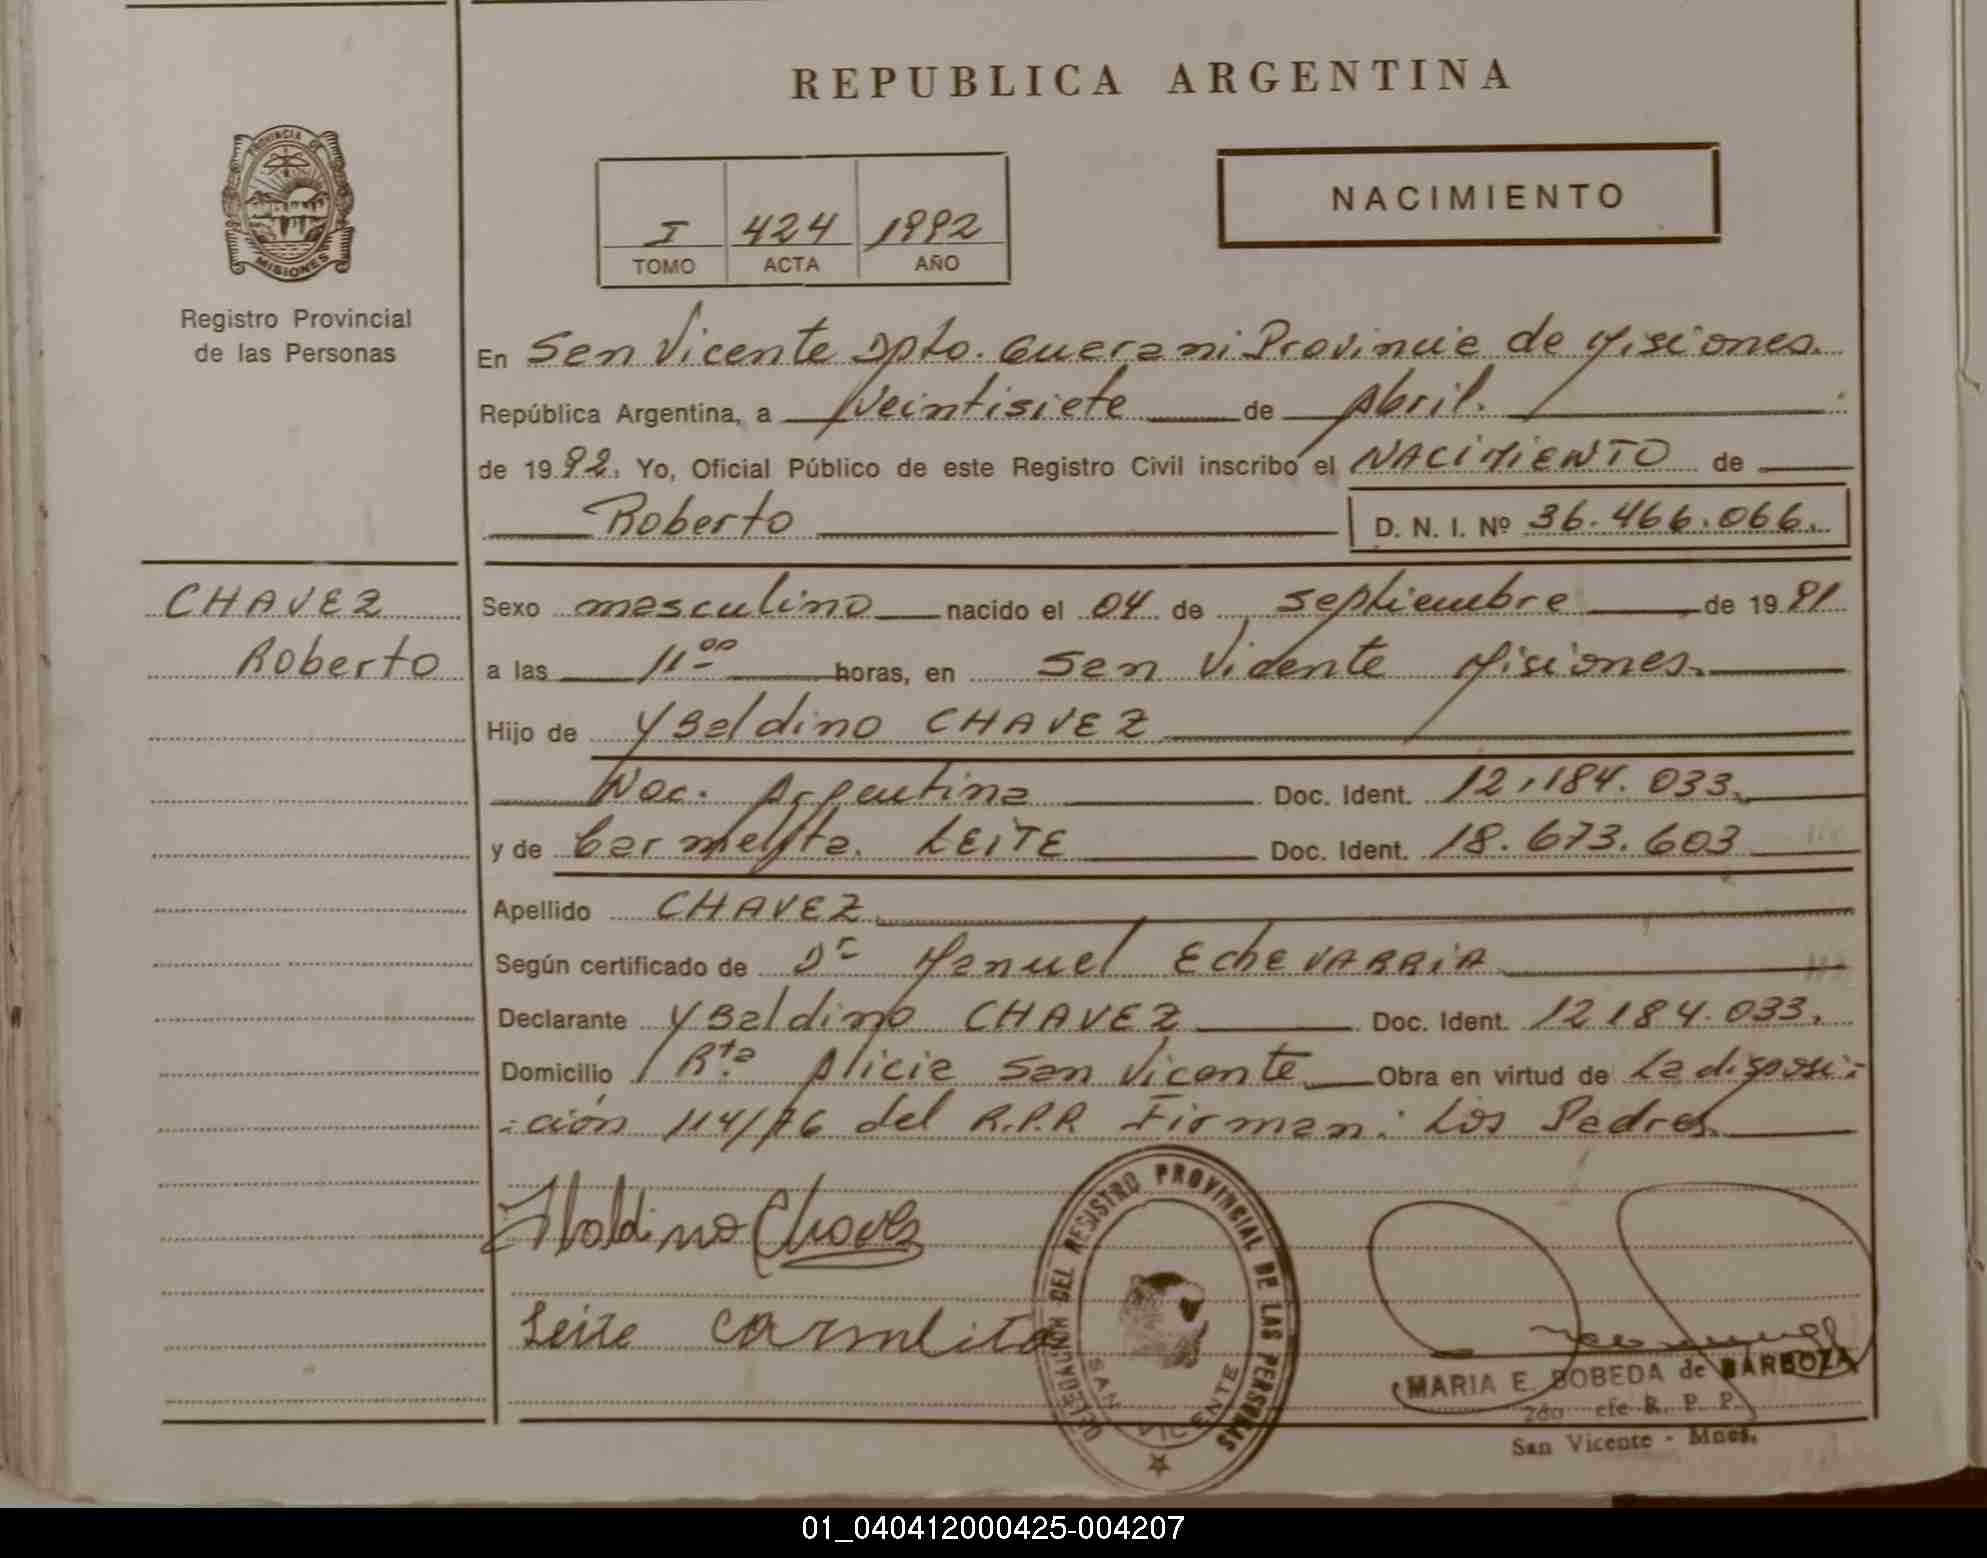 REPUBLICA ARGENTINA
PROVINCIA DE
MISIONES
NACIMIENTO
I 424 1992
TOMO ACTA AÑO
Registro Provincial
de las Personas
En San Vicente Dpto. Guarani Provincia de Misiones.
República Argentina, a veintisiete de Abril.
de 1992. Yo, Oficial Público de este Registro Civil inscribo el NACIMIENTO de
Roberto D. N. I. Nº 36.466.066.
CHAVEZ
Roberto
Sexo masculino nacido el 04 de septiembre de 1991
a las 11 00 horas, en San Vicente Misiones.
Hijo de Ybaldino CHAVEZ
Nac. Argentina Doc. Ident. 12.184.033.
y de Carmelita. LEITE Doc. Ident. 18.673.603
Apellido CHAVEZ
Según certificado de Dr Manuel EcheVARRiA
Declarante Ybaldino CHAVEZ Doc. Ident. 12184.033.
Domicilio Rta Alicia San Vicente Obra en virtud de La disposi-
-ción 114/76 del R.P.R Firman: Los Padres
Ibaldino Chavez
Leite Carmlita
DELEGACION DEL REGISTRO PROVINCIAL DE LAS PERSONAS
SAN VICENTE
MARIA E. BOBEDA de BARBOZA
R. P. P.
San Vicente - Mnes.
01_040412000425-004207